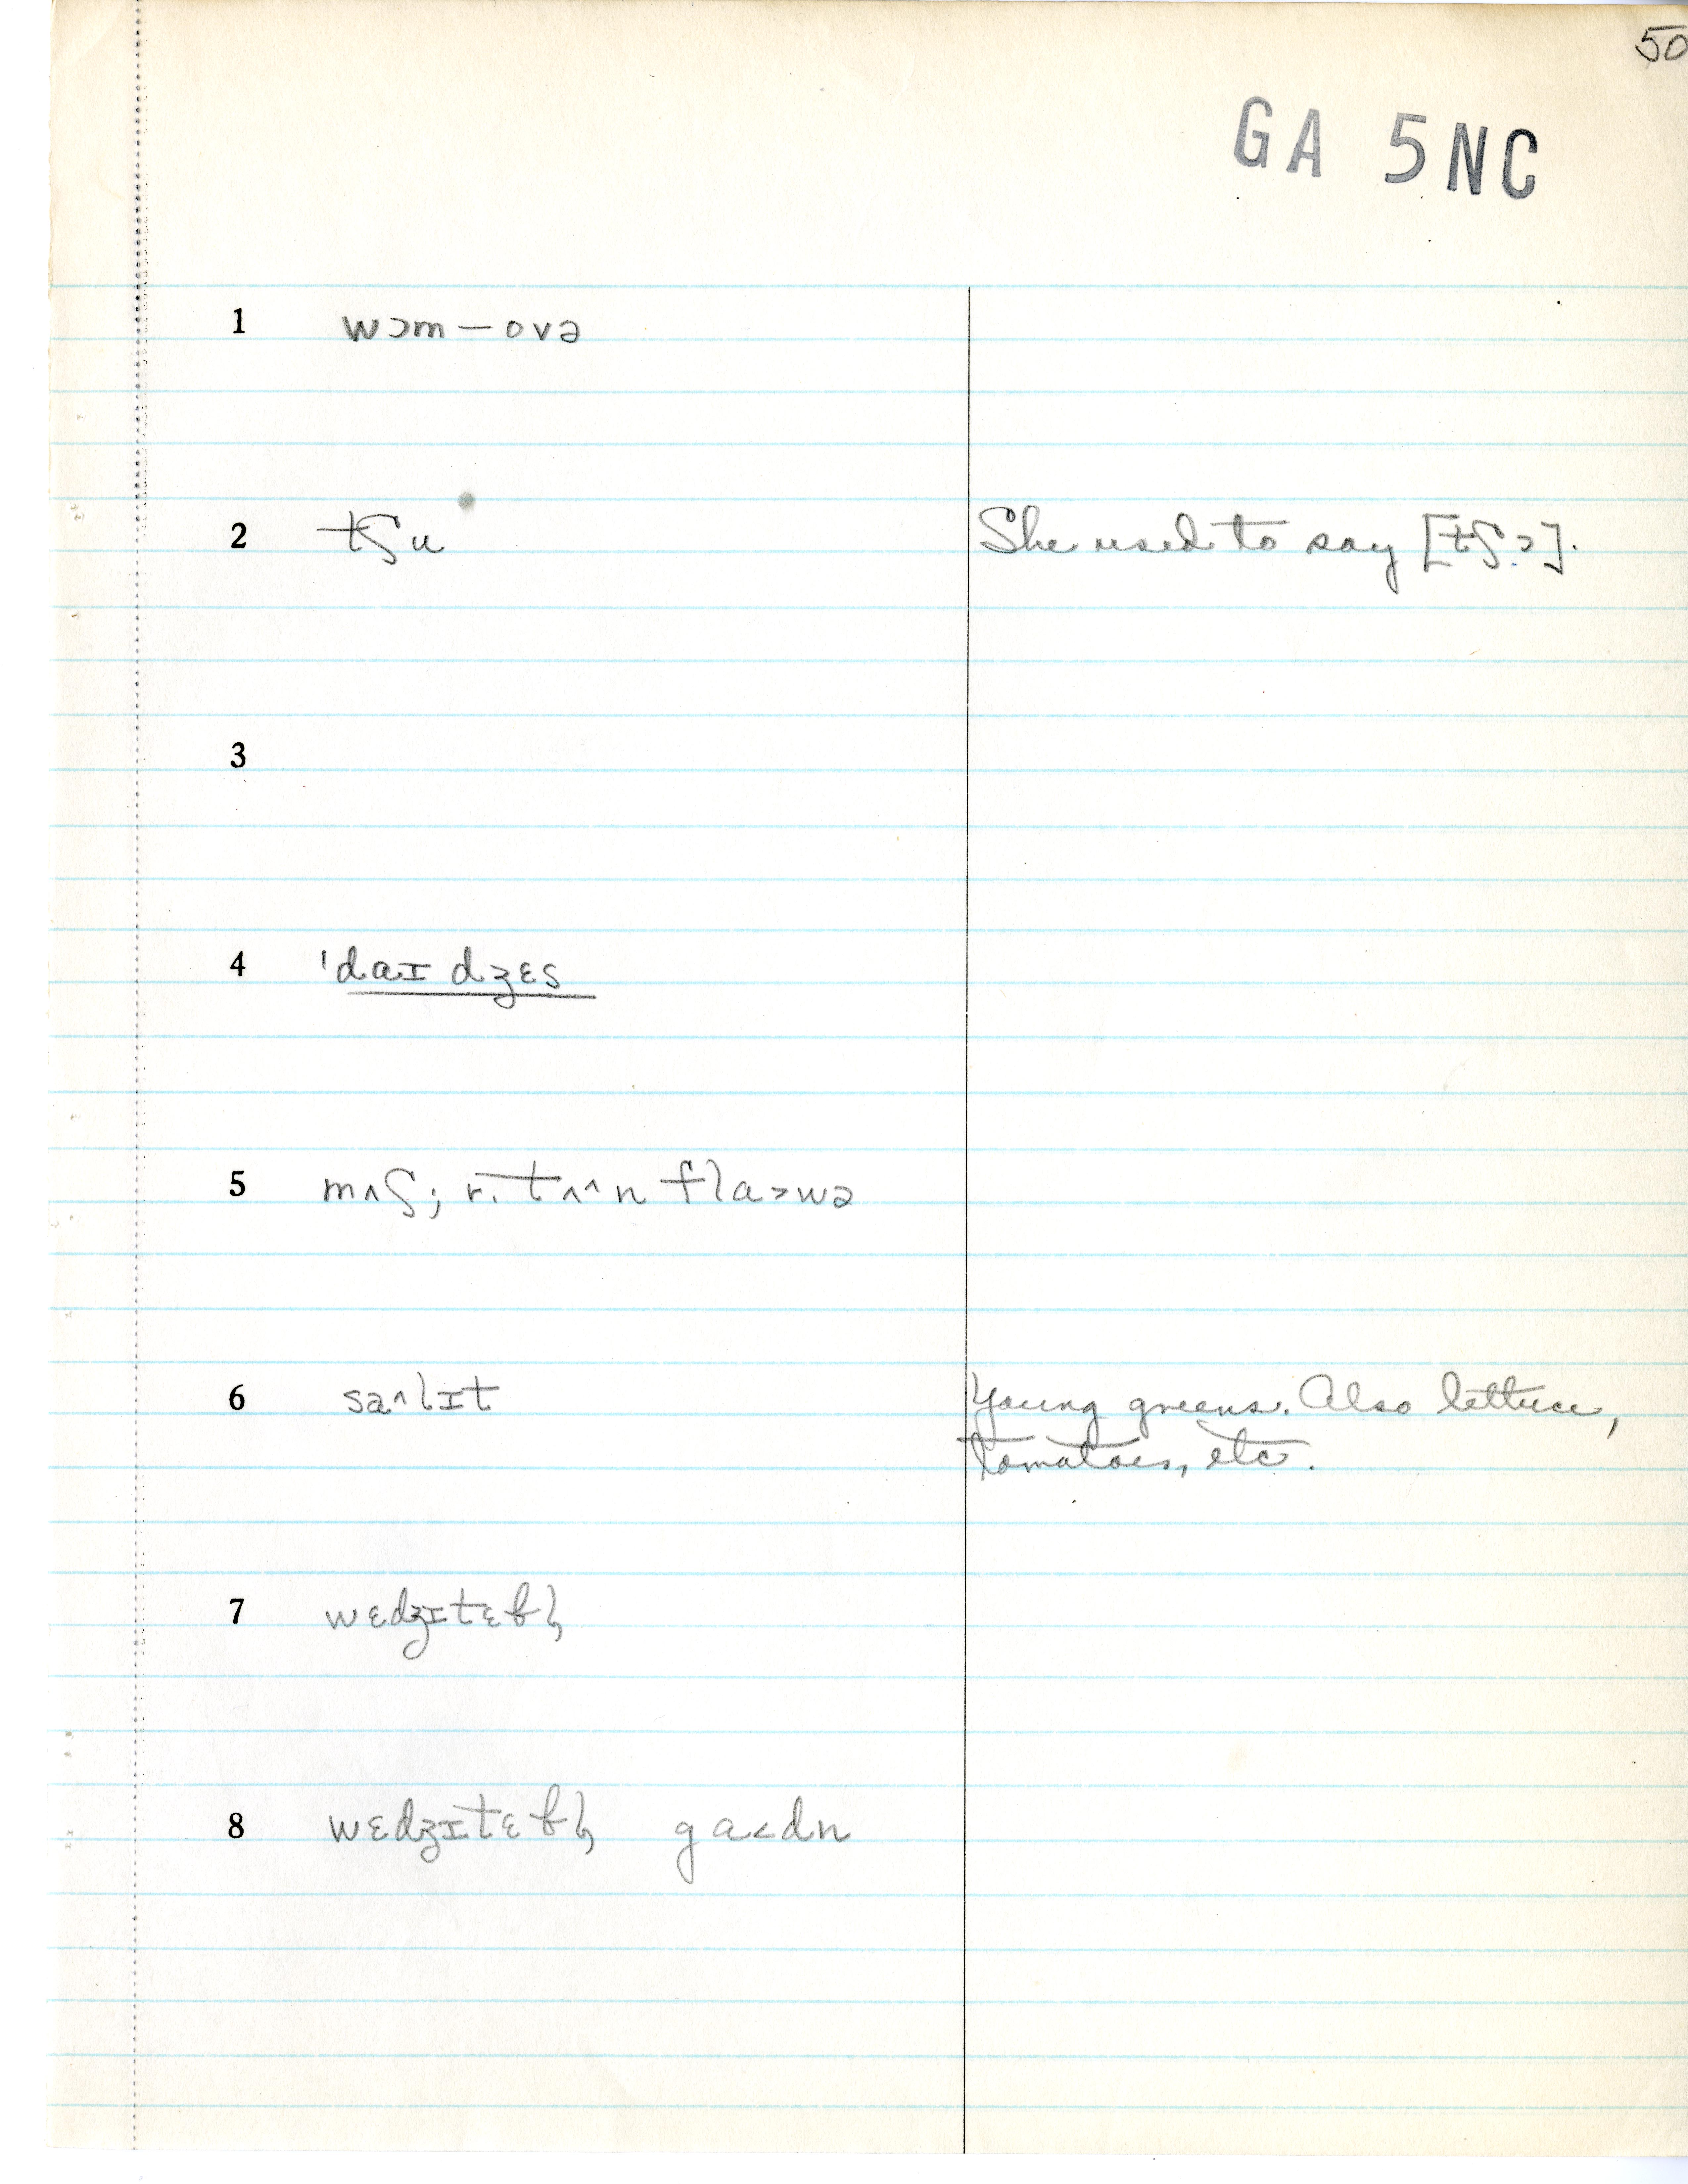 50
GA 5NC
1 wɔm – ovə
2 tʃu She used to say [tʃ.ɔ].
3
4 ˈdaɪ dʒɛs
5 mʌʃ; r. tʌ^n fla>wə
6 sa^lɪt Young greens. Also lettuce,
tomatoes, etc.
7 wɛdʒɪtɛbl̩
8 wɛdʒɪtɛbl̩ ga<dn